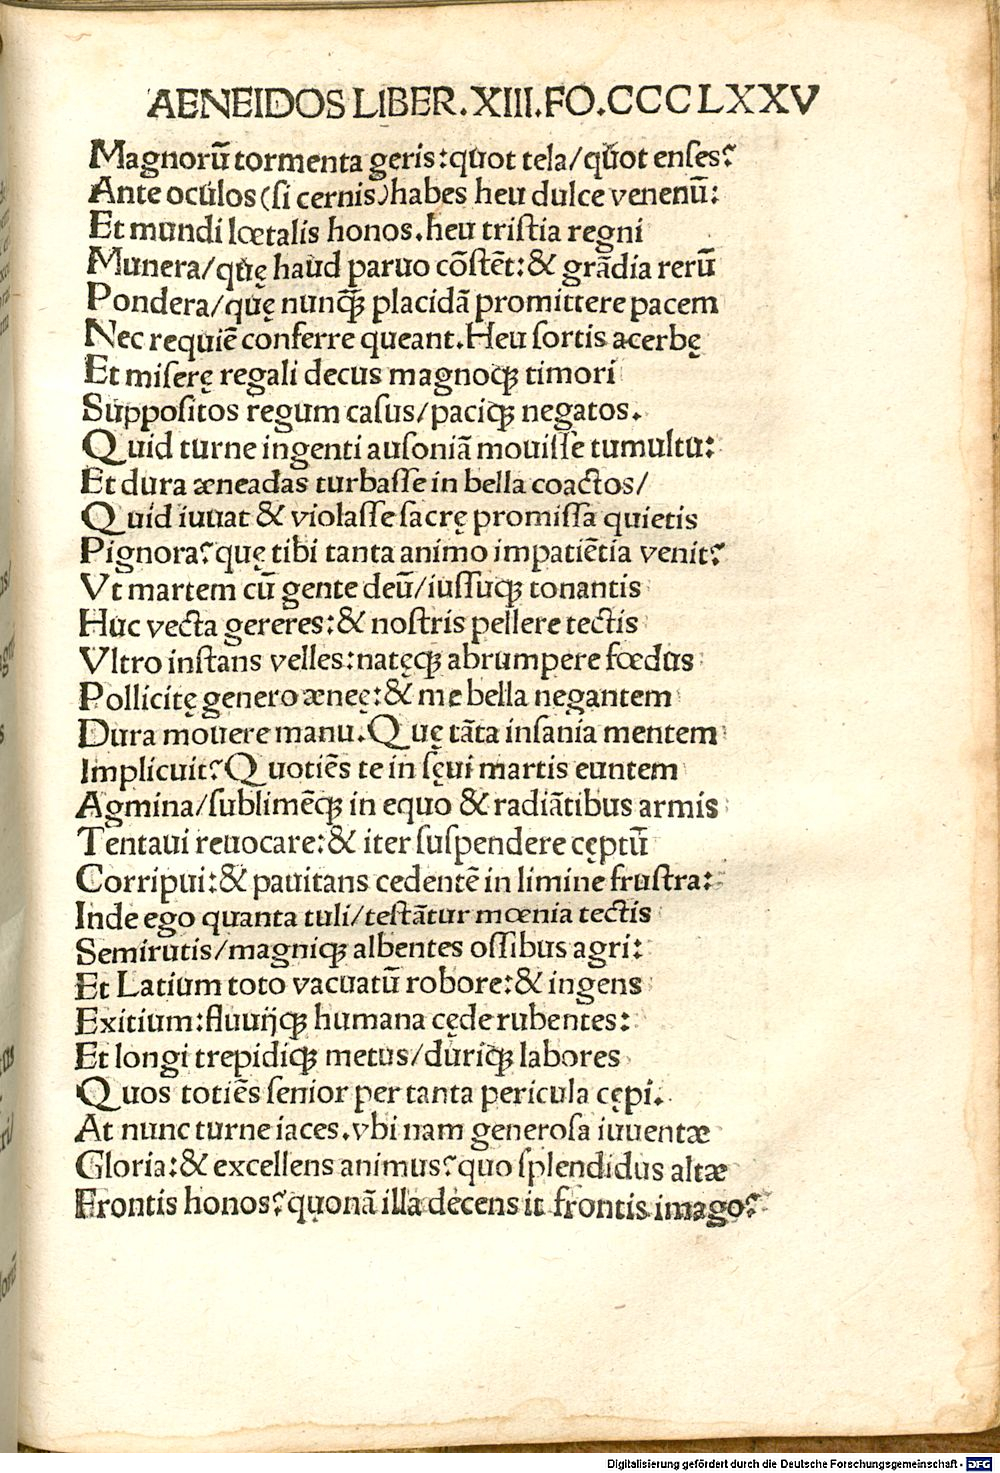 AENEIDOS LIBER.XIII.FO.CCCLXXV
Magnorũ tormenta geris:quot tela/quot enses?
Ante oculos(si cernis)habes heu dulce venenũ:
Et mundi lœtalis honos.heu tristia regni
Munera/quę haud paruo cõstẽt:& grãdia rerũ
Pondera/quę nunq̃ placidã promittere pacem
Nec requiẽ conferre queant.Heu sortis acerbę
Et miserę regali decus magnoqꝫ timori
Suppositos regum casus/paciqꝫ negatos.
Quid turne ingenti ausoniã mouisse tumultu:
Et dura æneadas turbasse in bella coactos/
Quid iuuat & violasse sacrę promissa quietis
Pignora?quę tibi tanta animo impatiẽtia venit?
Vt martem cũ gente deũ/iussuqꝫ tonantis
Huc vecta gereres:& nostris pellere tectis
Vltro instans velles:natęqꝫ abrumpere fœdus
Pollicitę genero æneę:& me bella negantem
Dura mouere manu.Quę tãta insania mentem
Implicuit?Quotiẽs te in sęui martis euntem
Agmina/sublimẽqꝫ in equo & radiãtibus armis
Tentaui reuocare:& iter suspendere cęptũ
Corripui:& pauitans cedentẽ in limine frustra:
Inde ego quanta tuli/testãtur mœnia tectis
Semirutis/magniqꝫ albentes ossibus agri:
Et Latium toto vacuatũ robore:& ingens
Exitium:fluuijqꝫ humana cęde rubentes:
Et longi trepidiqꝫ metus/duriqꝫ labores
Quos totiẽs senior per tanta pericula cępi.
At nunc turne iaces.vbi nam generosa iuuentæ
Gloria:& excellens animus?quo splendidus altæ
Frontis honos?quonã illa decens it frontis imago?
Digitalisierung gefördert durch die Deutsche Forschungsgemeinschaft - DFG